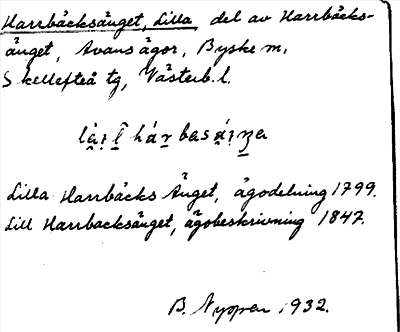 Harrbäcksänget, Lilla del av Harrbäcks-
änget, Avans ägor, Byske m,
Skellefteå tg, Västerb. l.
Lilla Harrbäcks Änget, ägodelning 1799.
Lill Harrbacksänget, ägobeskrivning 1847.
B. Nyman 1932.